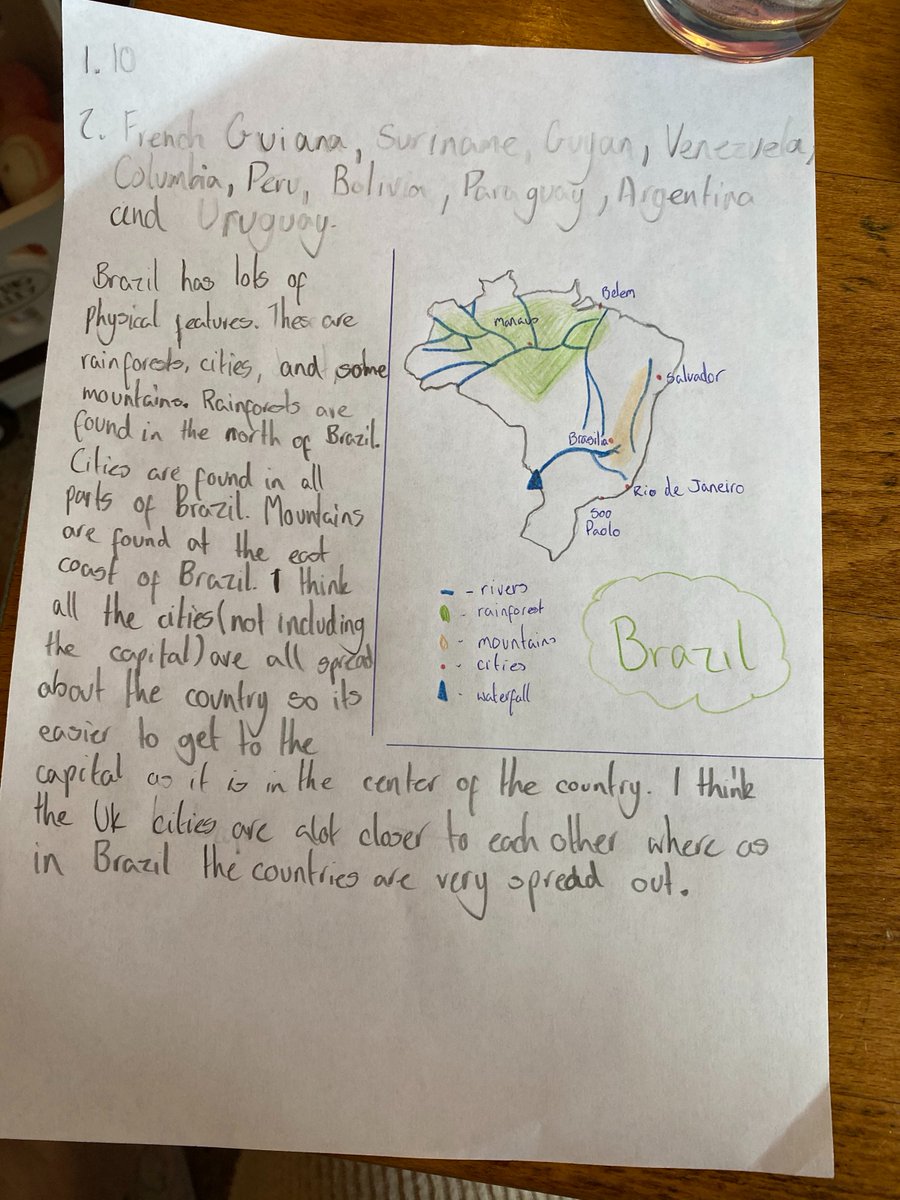 1. 10
2. French Guiana, Suriname, Guyan, Venezuela,
Columbia, Peru, Bolivia, Paraguay, Argentina
and Uruguay.
Brazil has lots of
physical features. Thes are
rainforests, cities, and some
mountains. Rainforets are
found in the north of Brazil.
Cities are found in all
parts of Brazil. Mountains
are found at the east
coast of Brazil. I think
all the cities (not including
the capital) are all spread
about the country so its
easier to get to the
capital as it is in the center of the country. I think
the Uk cities are alot closer to each other where as
in Brazil the countries are very spread out.
Belem
manaus
Salvador
Brasilia
Rio de Janeiro
Soo
Paolo
- rivers
- rainforest
- mountains
- cities
- waterfall
Brazil